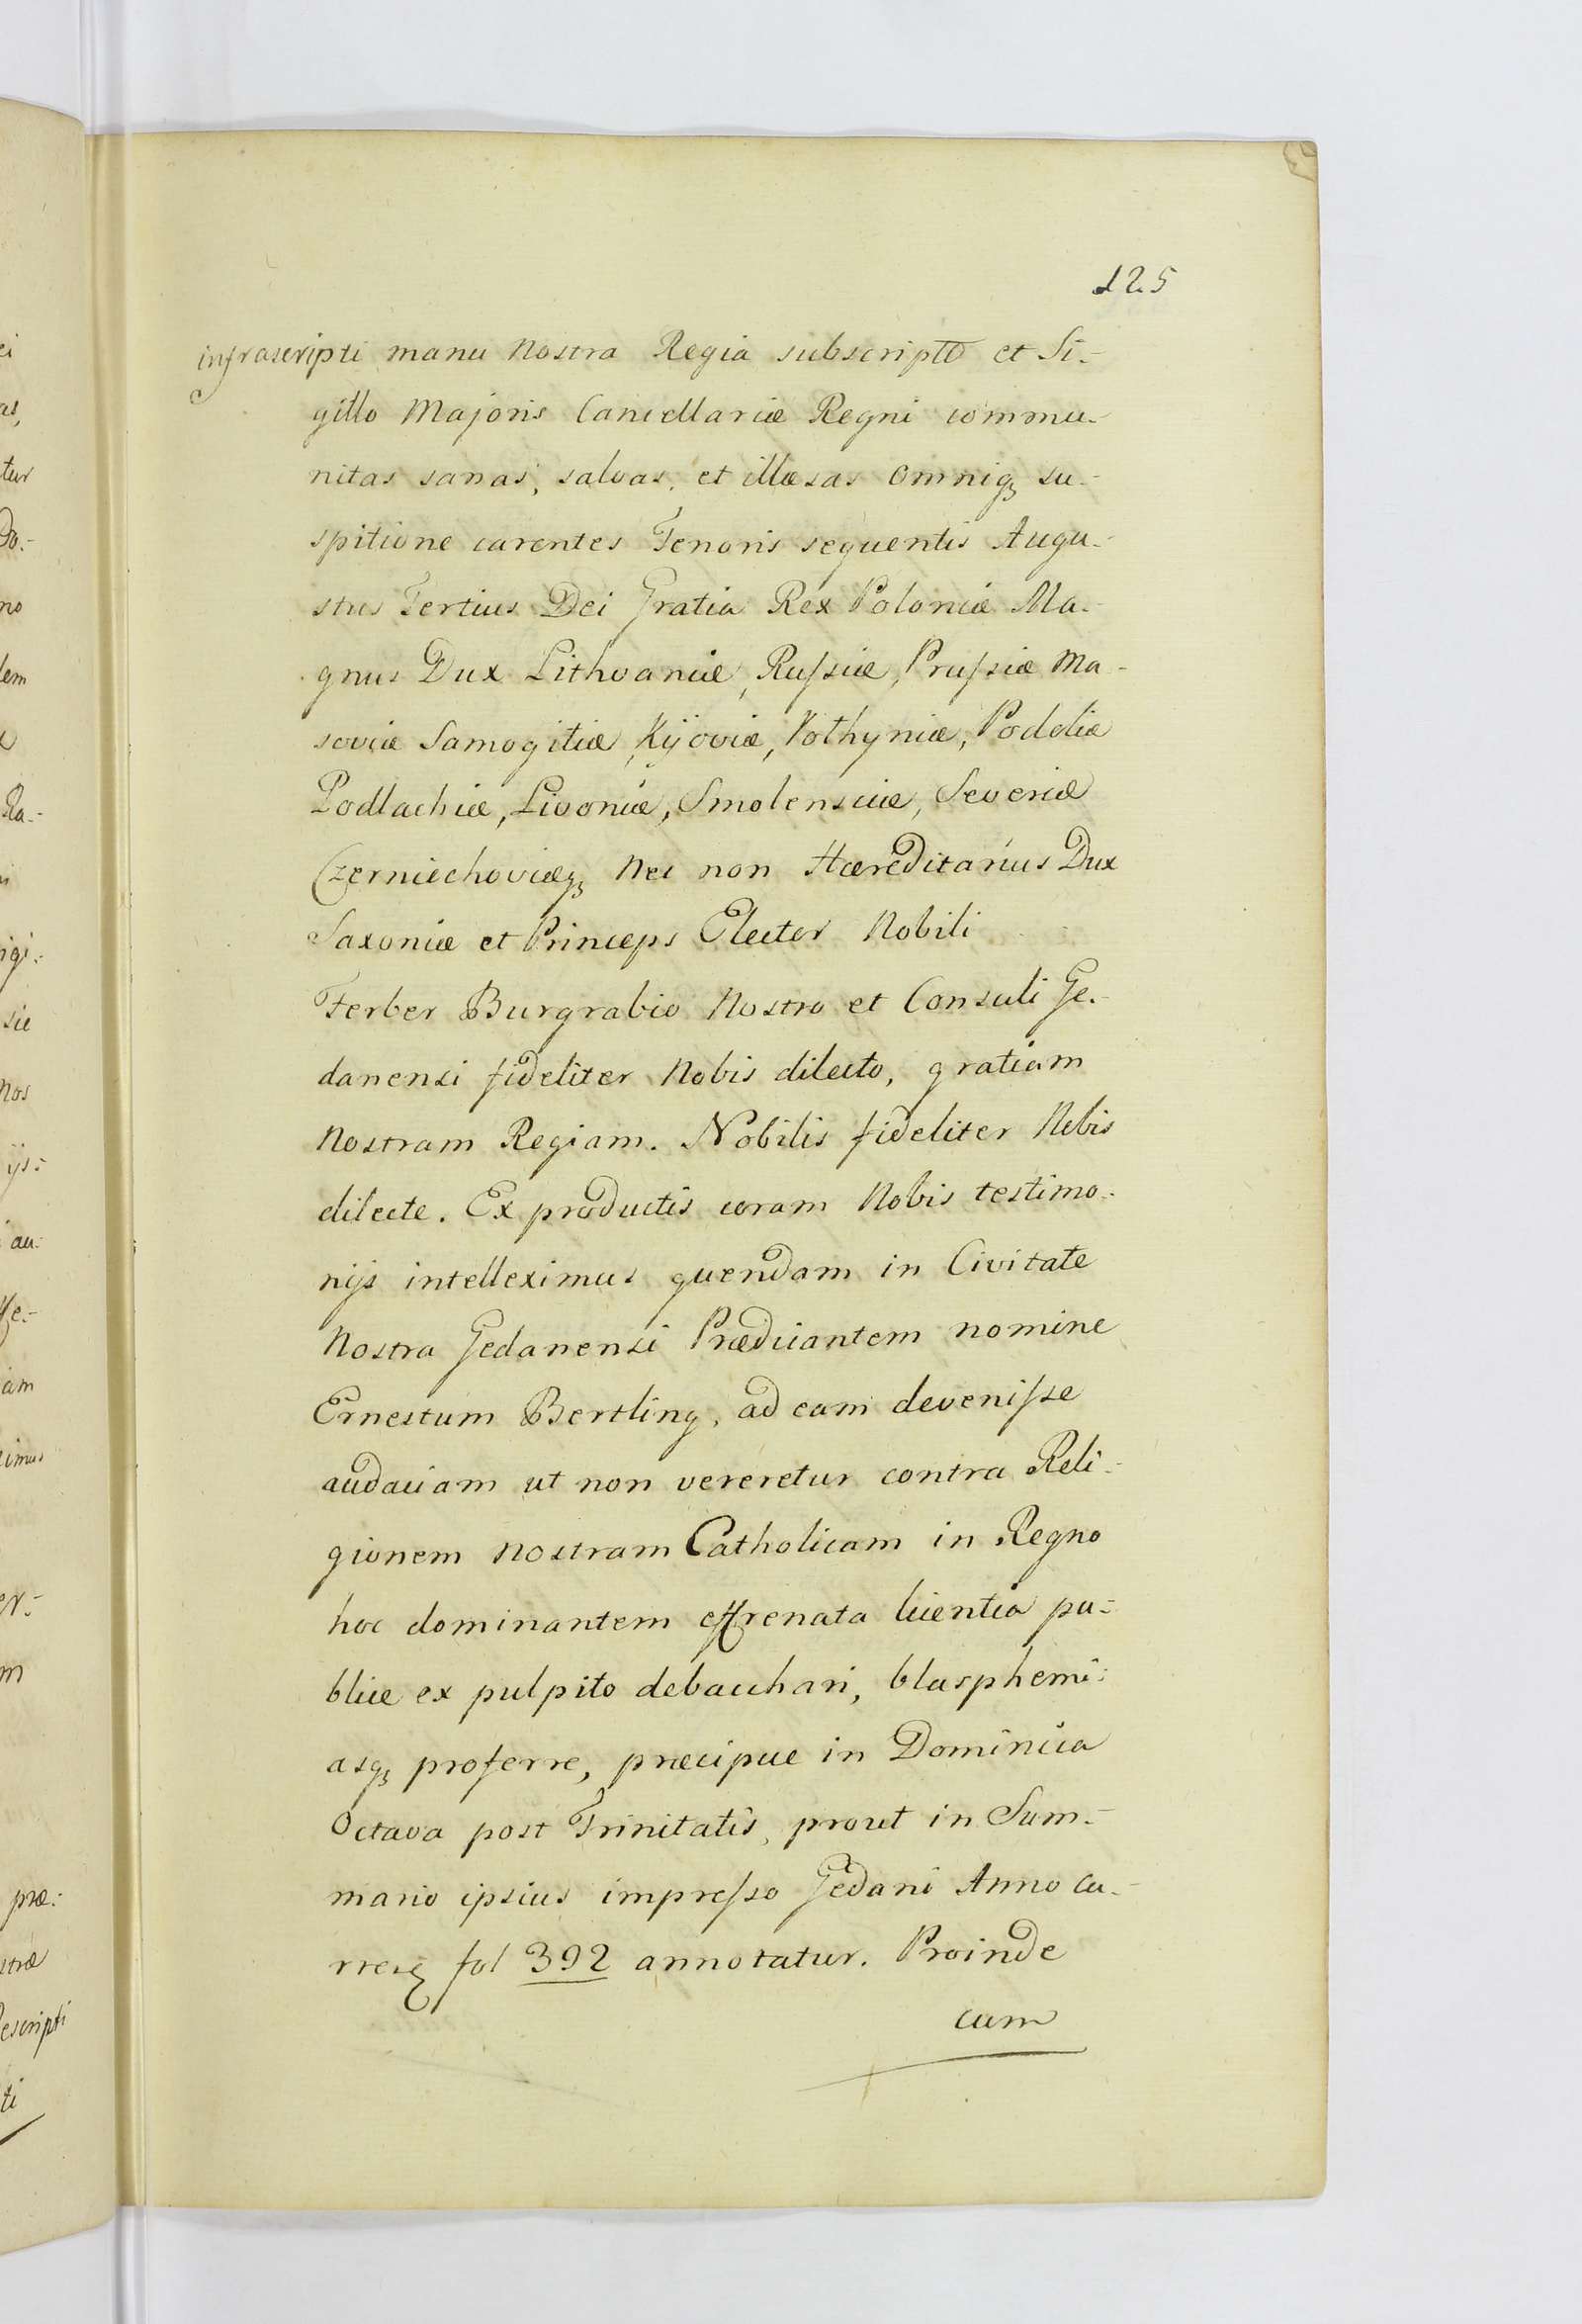 125
infrascripti manu Nostra Regia subscripto et Si-
gillo Majoris Cancellariæ Regni commu-
nitas sanas, salvas, et illæsas omniq₃ su-
spitione carentes Tenoris sequentis Augu-
stus Tertius Dei Gratia Rex Poloniæ Ma-
gnus Dux Lithvaniæ, Russiæ, Prussiæ Ma-
soviæ Samogitiæ, Kijoviæ, Volhyniæ, Podoliæ
Podlachiæ, Livoniæ, Smolensciæ, Severiæ
Czerniechoviæq₃ Nec non Hæreditarius Dux
Saxoniæ et Princeps Elector Nobili
Ferber Burgrabio Nostro et Consuli Ge-
danensi fideliter Nobis dilecto, gratiam
Nostram Regiam. Nobilis fideliter Nobis
dilecte. Ex productis coram Nobis testimo-
nijs intelleximus quendam in Civitate
Nostra Gedanensi Prædicantem nomine
Ernestum Bertling, ad eam devenisse
audaciam ut non vereretur contra Reli-
gionem Nostram Catholicam in Regno
hoc dominantem effrenata licentia pu-
blice ex pulpito debacchari, blasphemi-
asq₃ proferre, præcipue in Dominica
Octava post Trinitatis, prout in Sum-
mario ipsius impresso Gedani Anno cu-
rren₃ fol 392 annotatur. Proinde
cum
ei
as,
tur
Do-
no
dem
Ra-
igi-
sie
Nos
ijs-
au-
iam
cimus
er-
m
præ-
stræ
Rescripti
ti